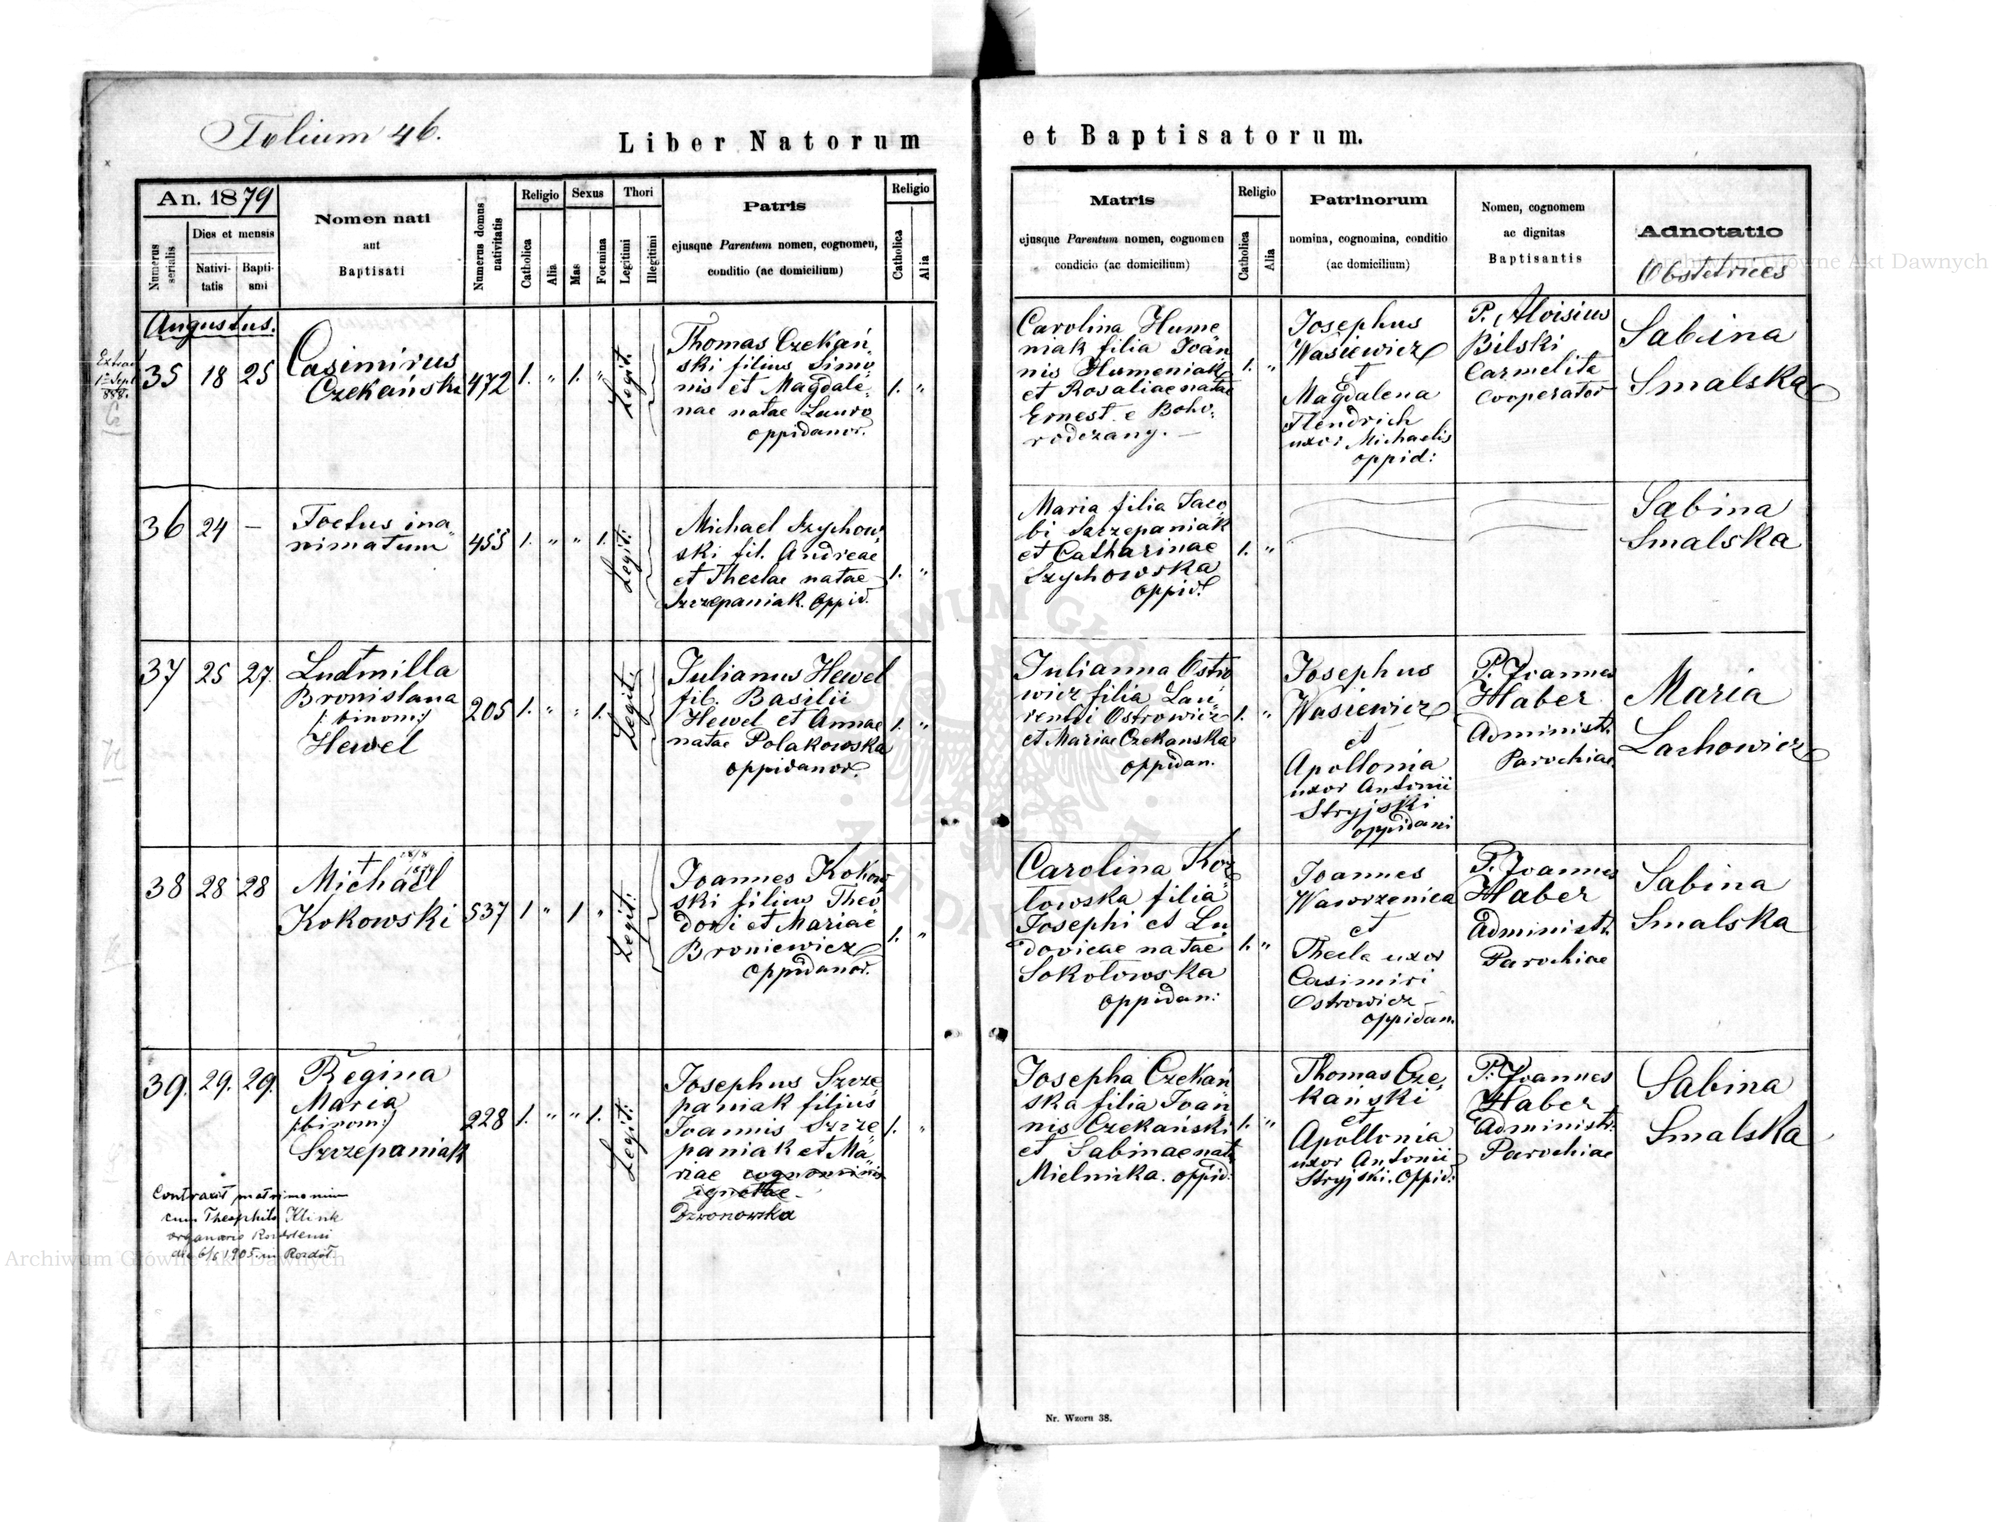 Folium 46.
Liber Natorum et Baptisatorum.
An. 1879
Numerus serialis
Dies et mensis
Nativitatis
Baptismi
Nomen nati
aut
Baptisati
Numerus domus nativitatis
Religio
Catholica
Alia
Sexus
Mas
Foemina
Thori
Legitimi
Illegitimi
Patris
ejusque Parentum nomen, cognomen,
conditio (ac domicilium)
Religio
Catholica
Alia
Matris
ejusque Parentum nomen, cognomen
condicio (ac domicilium)
Religio
Catholica
Alia
Patrinorum
nomina, cognomina, conditio
(ac domicilium)
Nomen, cognomem
ac dignitas
Baptisantis
Adnotatio
Obstetrices
Augustus.
35 18 25
Casimirus
Czekański
472 1. " 1. "
Legit:
Thomas Czekań
ski filius Simo
nis et Magdale
nae natae Lauro
oppidanor.
1. "
Carolina Hume
niak filia Joan
nis Humeniak
et Rosaliae natae
Ernest e Boho
rodczany. —
1. "
Josephus
Wasiewicz
et
Magdalena
Hendrich
uxor Michaelis
oppid:
P. Aloisius
Bilski
Carmelita
Cooperator
Sabina
Smalska
36 24 —
Foetus ina
nimatum
455 1. " " 1.
Legit:
Michael Szychow
ski fil. Andreae
et Theclae natae
Szczepaniak. Oppid.
1. "
Maria filia Jaco
bi Szczepaniak
et Catharinae
Szychowska
oppid.
1. "
Sabina
Smalska
37 25 27
Ludmilla
Bronislana
/: binom:/
Hewel
205 1. " " 1.
Legit:
Julianus Hewel
fil. Basilii
Hewel et Annae
natae Polakowska
oppidanor.
1. "
Julianna Ostro
wicz filia Lau
rentii Ostrowicz
et Mariae Czekanska
oppidan.
1. "
Josephus
Wasiewicz
et
Apollonia
uxor Antonii
Stryjski
oppidani
P. Joannes
Haber
Administ.
Parochiae
Maria
Lachowicz
38 28 28
Michael
Kokowski
537 1 " 1 "
Legit:
Joannes Kokow
ski filius Theo
dori et Mariae
Broniewicz
oppidanor.
1. "
Carolina Koz
łowska filia
Josephi et Lu
dovicae natae
Sokołowska
oppidan:
1. "
Joannes
Wawrzenica
et
Thecla uxor
Casimiri
Ostrowicz —
oppidan.
P. Joannes
Haber
Administ.
Parochiae
Sabina
Smalska
39. 29. 29.
Regina
Maria
/:binom:/
Szczepaniak
228 1. " " 1.
Legit:
Josephus Szcze
paniak filius
Joannis Szcze
paniak et Ma
riae cognominis
ignotae —
Dzwonowska
1. "
Josepha Czekań
ska filia Joan
nis Czekański
et Sabinae nat.
Mielnicka. oppid:
1. "
Thomas Cze
kański
et
Apollonia
uxor Antonii
Stryjski. Oppid:
P. Joannes
Haber
Administ.
Parochiae
Sabina
Smalska
Contraxit matrimonium
cum Theophilo Klink
die 6/6 1905. in Rozdół.
Nr. Wzoru 38.
Archiwum Główne Akt Dawnych
Archiwum Główne Akt Dawnych